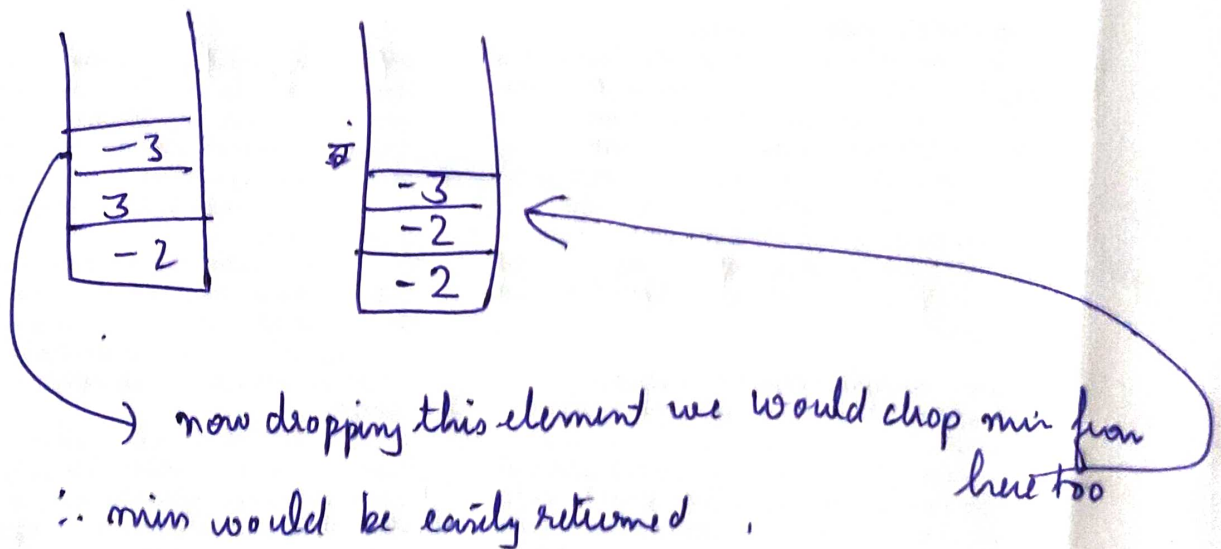 -3
3
-2
-3
-2
-2
now dropping this element we would chop min from
here too
∴ min would be easily returned .